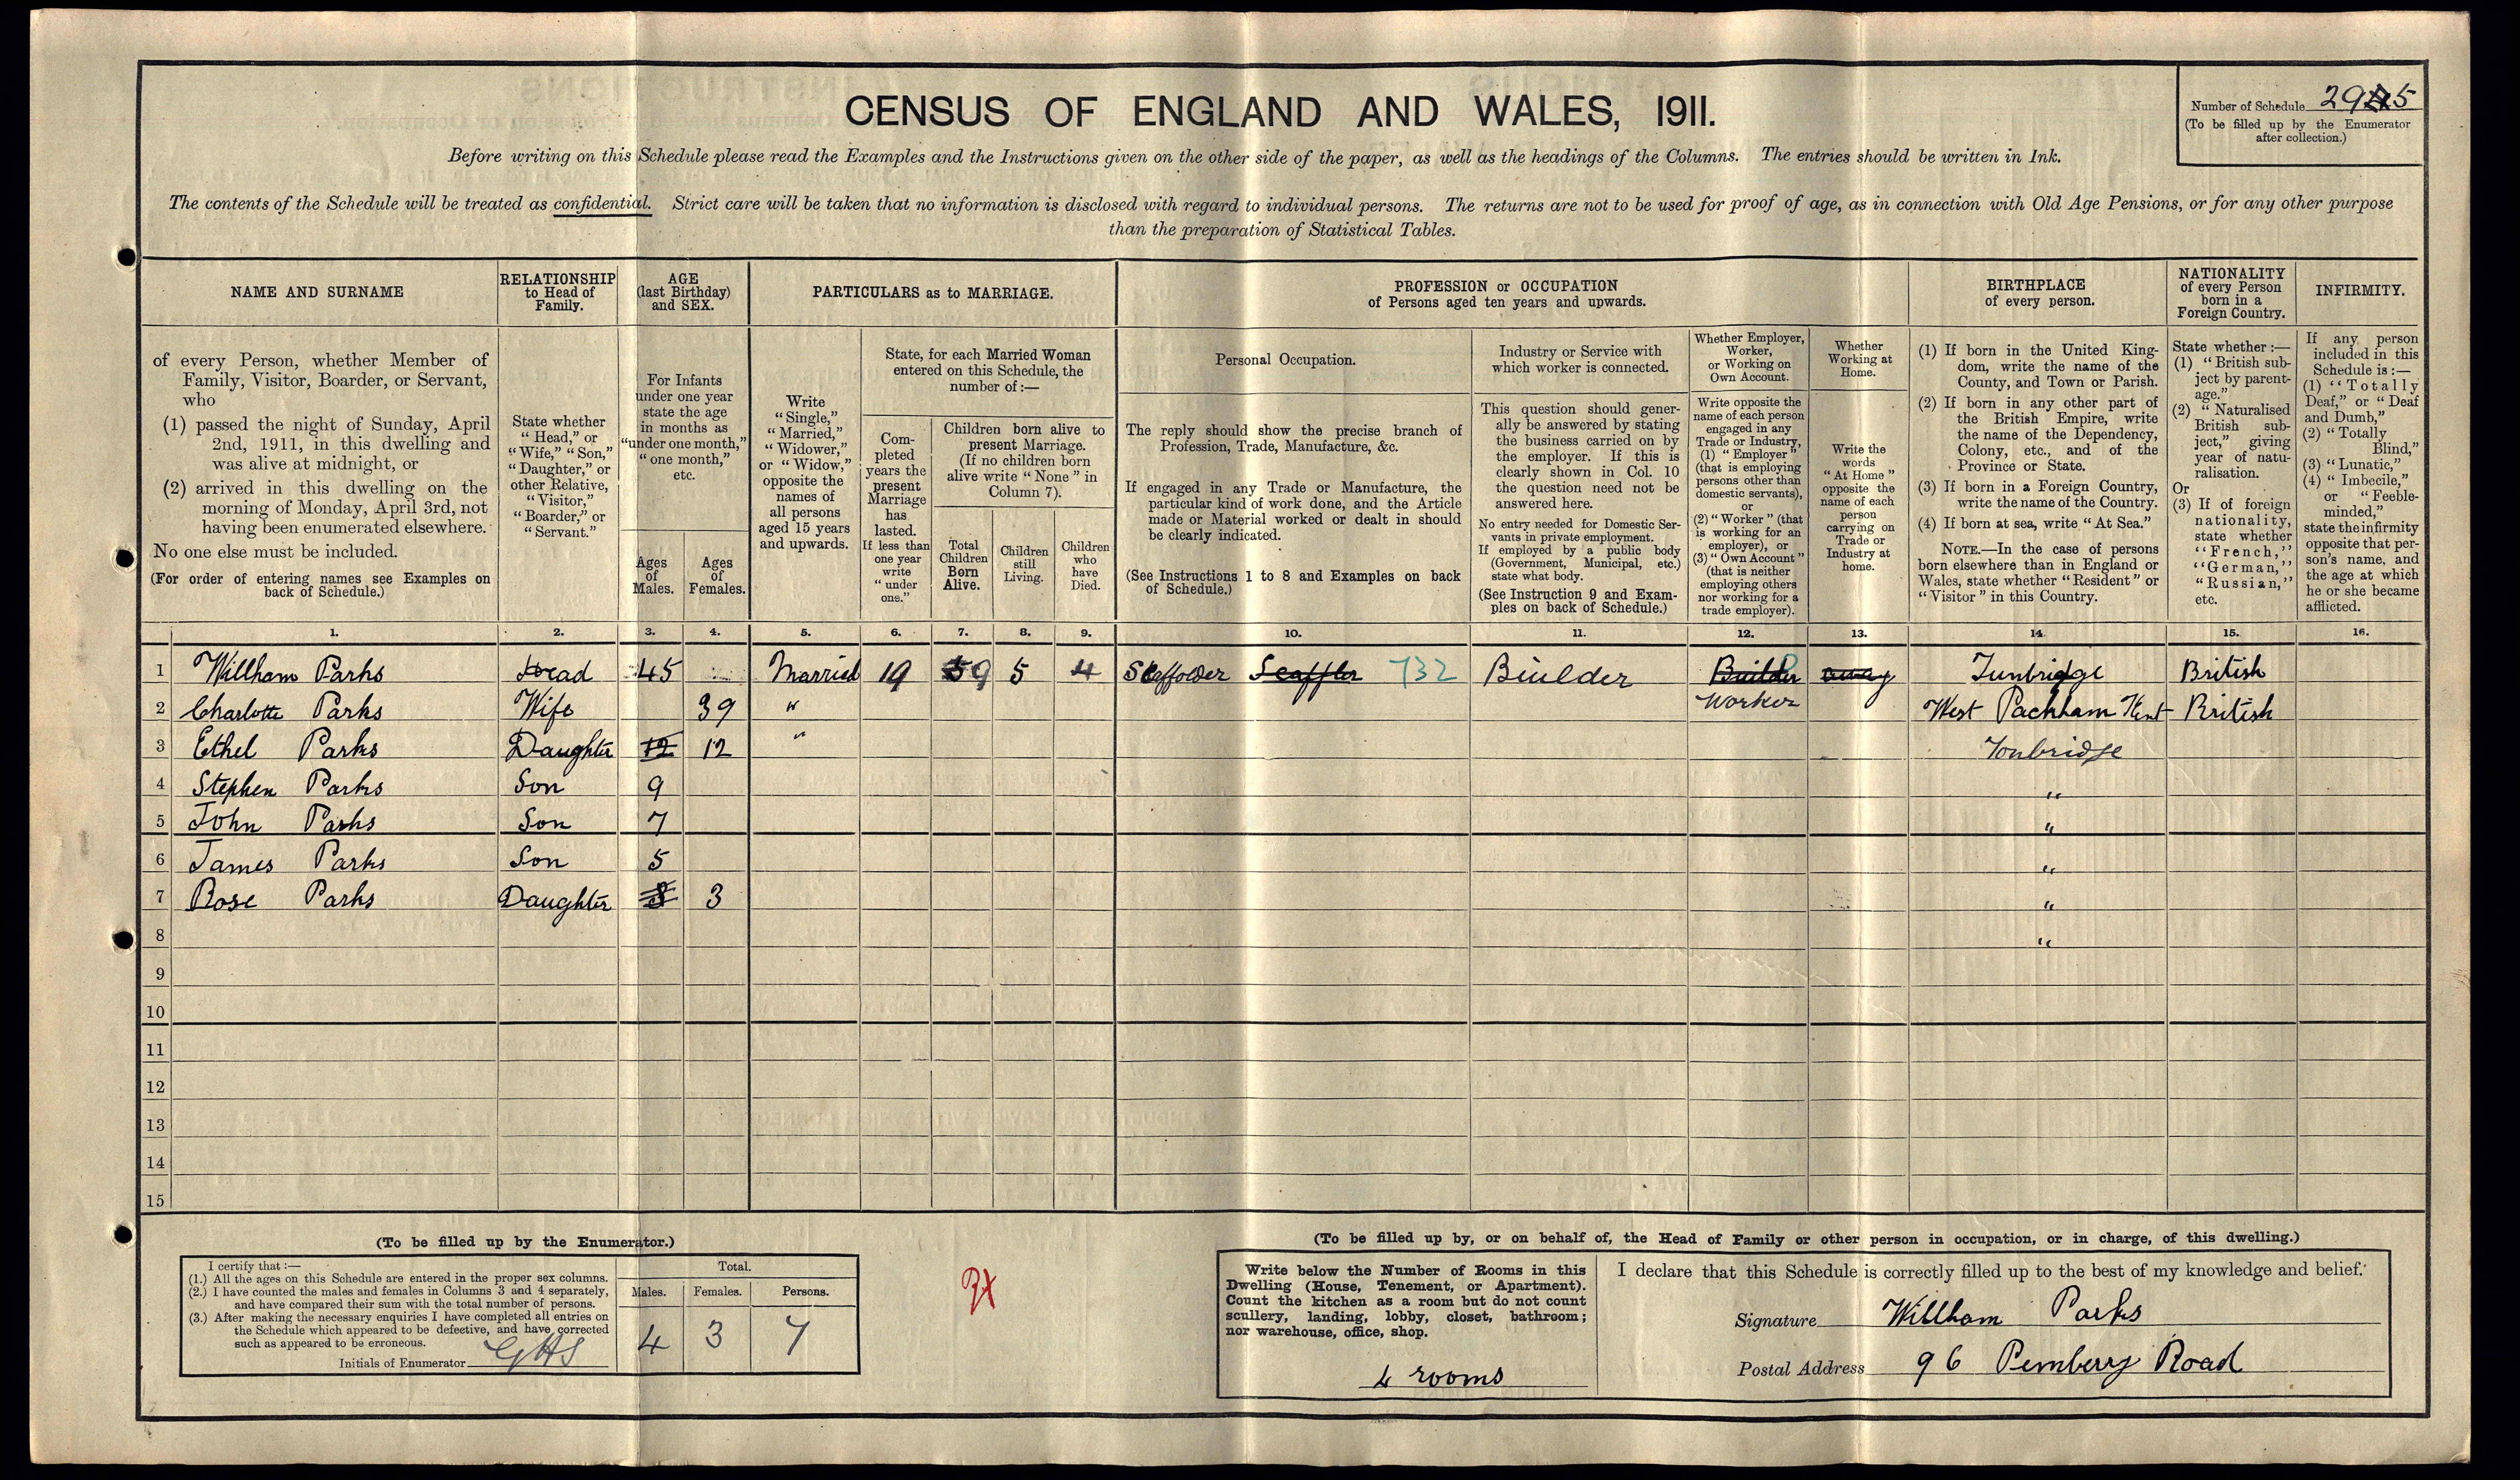 CENSUS OF ENGLAND AND WALES, 1911.
Number of Schedule 295
(To be filled up by the Enumerator
after collection.)
Before writing on this Schedule please read the Examples and the Instructions given on the other side of the paper, as well as the headings of the Columns. The entries should be written in Ink.
The contents of the Schedule will be treated as confidential. Strict care will be taken that no information is disclosed with regard to individual persons. The returns are not to be used for proof of age, as in connection with Old Age Pensions, or for any other purpose
than the preparation of Statistical Tables.
NAME AND SURNAME
of every Person, whether Member of
Family, Visitor, Boarder, or Servant,
who
(1) passed the night of Sunday, April
2nd, 1911, in this dwelling and
was alive at midnight, or
(2) arrived in this dwelling on the
morning of Monday, April 3rd, not
having been enumerated elsewhere.
No one else must be included.
(For order of entering names see Examples on
back of Schedule.)
RELATIONSHIP
to Head of
Family.
State whether
"Head," or
"Wife," "Son,"
"Daughter," or
other Relative,
"Visitor,"
"Boarder," or
"Servant."
AGE
(last Birthday)
and SEX.
For Infants
under one year
state the age
in months as
"under one month,"
"one month,"
etc.
Ages
of
Males.
Ages
of
Females.
PARTICULARS as to MARRIAGE.
Write
"Single,"
"Married,"
"Widower,"
or "Widow,"
opposite the
names of
all persons
aged 15 years
and upwards.
State, for each Married Woman
entered on this Schedule, the
number of:—
Com-
pleted
years the
present
Marriage
has
lasted.
If less than
one year
write
"under
one."
Children born alive to
present Marriage.
(If no children born
alive write "None" in
Column 7).
Total
Children
Born
Alive.
Children
still
Living.
Children
who
have
Died.
PROFESSION or OCCUPATION
of Persons aged ten years and upwards.
Personal Occupation.
The reply should show the precise branch of
Profession, Trade, Manufacture, &c.
If engaged in any Trade or Manufacture, the
particular kind of work done, and the Article
made or Material worked or dealt in should
be clearly indicated.
(See Instructions 1 to 8 and Examples on back
of Schedule.)
Industry or Service with
which worker is connected.
This question should gener-
ally be answered by stating
the business carried on by
the employer. If this is
clearly shown in Col. 10
the question need not be
answered here.
No entry needed for Domestic Ser-
vants in private employment.
If employed by a public body
(Government, Municipal, etc.)
state what body.
(See Instruction 9 and Exam-
ples on back of Schedule.)
Whether Employer,
Worker,
or Working on
Own Account.
Write opposite the
name of each person
engaged in any
Trade or Industry,
(1) "Employer"
(that is employing
persons other than
domestic servants),
or
(2) "Worker" (that
is working for an
employer), or
(3) "Own Account"
(that is neither
employing others
nor working for a
trade employer).
Whether
Working at
Home.
Write the
words
"At Home"
opposite the
name of each
person
carrying on
Trade or
Industry at
home.
BIRTHPLACE
of every person.
(1) If born in the United King-
dom, write the name of the
County, and Town or Parish.
(2) If born in any other part of
the British Empire, write
the name of the Dependency,
Colony, etc., and of the
Province or State.
(3) If born in a Foreign Country,
write the name of the Country.
(4) If born at sea, write "At Sea."
NOTE.—In the case of persons
born elsewhere than in England or
Wales, state whether "Resident" or
"Visitor" in this Country.
NATIONALITY
of every Person
born in a
Foreign Country.
State whether:—
(1) "British sub-
ject by parent-
age."
(2) "Naturalised
British sub-
ject," giving
year of natu-
ralisation.
Or
(3) If of foreign
nationality,
state whether
"French,"
"German,"
"Russian,"
etc.
INFIRMITY.
If any person
included in this
Schedule is:—
(1) "Totally
Deaf," or "Deaf
and Dumb,"
(2) "Totally
Blind,"
(3) "Lunatic,"
(4) "Imbecile,"
or "Feeble-
minded,"
state the infirmity
opposite that per-
son's name, and
the age at which
he or she became
afflicted.
1. 2. 3. 4. 5. 6. 7. 8. 9. 10. 11. 12. 13. 14. 15. 16.
1 Willham Parks Head 45 Married 19 9 5 4 Scaffolder Scaffler 732 Biulder Builder away Tunbridge British
2 Charlotte Parks Wife 39 " Worker West Packham Kent British
3 Ethel Parks Daughter 12 12 " Tonbridge
4 Stephen Parks Son 9 "
5 John Parks Son 7 "
6 James Parks Son 5 "
7 Rose Parks Daughter 3 3 "
8 "
9
10
11
12
13
14
15
(To be filled up by the Enumerator.)
I certify that:—
(1.) All the ages on this Schedule are entered in the proper sex columns.
(2.) I have counted the males and females in Columns 3 and 4 separately,
and have compared their sum with the total number of persons.
(3.) After making the necessary enquiries I have completed all entries on
the Schedule which appeared to be defective, and have corrected
such as appeared to be erroneous.
Initials of Enumerator GHS
Total.
Males. Females. Persons.
4 3 7
(To be filled up by, or on behalf of, the Head of Family or other person in occupation, or in charge, of this dwelling.)
Write below the Number of Rooms in this
Dwelling (House, Tenement, or Apartment).
Count the kitchen as a room but do not count
scullery, landing, lobby, closet, bathroom;
nor warehouse, office, shop.
4 rooms
I declare that this Schedule is correctly filled up to the best of my knowledge and belief.
Signature Willham Parks
Postal Address 96 Pembery Road